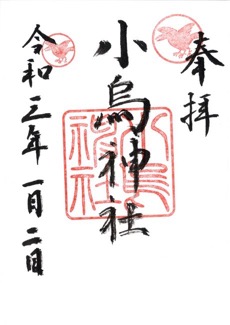 奉拝
小烏神社
令和三年一月二日
小烏神社